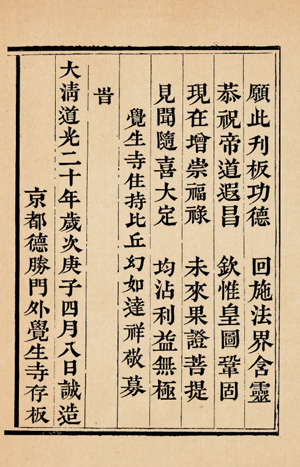 願此刋板功德　回施法界含靈
恭祝帝道遐昌　欽惟皇圖鞏固
現在增崇福祿　未來果證菩提
見聞隨喜大定　均沾利益無極
覺生寺住持比丘幻如達祥敬募
旹
大淸道光二十年歲次庚子四月八日誠造
京都德勝門外覺生寺存板